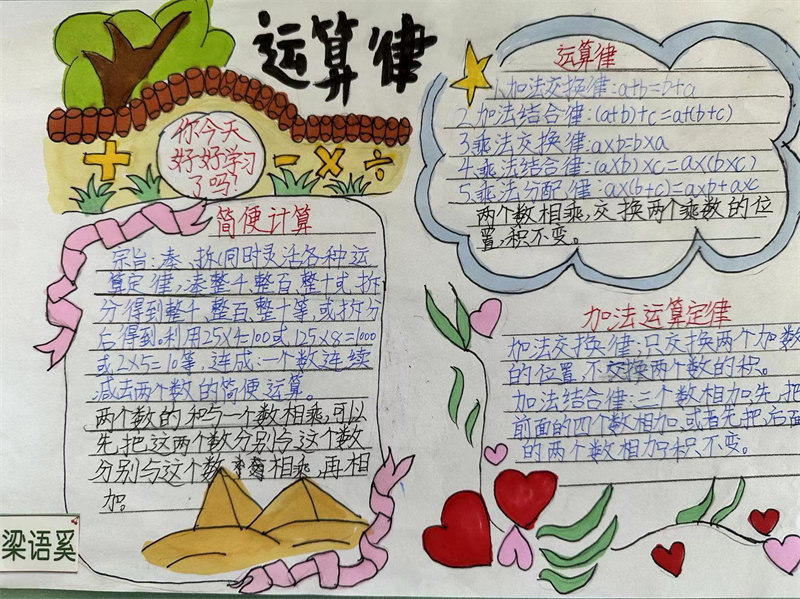 运算律
你今天
好好学习
了吗!
+ - × ÷
简便计算
宗旨:凑、拆(同时灵活各种运
算定律,凑整千、整百、整十或拆
分得到整千、整百、整十等,或拆分
后得到利用25×4=100或125×8=1000
或2×5=10等,连成:一个数连续
减去两个数的简便运算。
两个数的和与一个数相乘,可以
先把这两个数分别与这个数
分别与这个数相乘,再相
加。
梁语奚
运算律
1.加法交换律:a+b=b+a
2.加法结合律:(a+b)+c=a+(b+c)
3.乘法交换律:a×b=b×a
4.乘法结合律:(a×b)×c=a×(b×c)
5.乘法分配律:a×(b+c)=a×b+a×c
两个数相乘,交换两个乘数的位
置,积不变。
加法运算定律
加法交换律:只交换两个加数
的位置,不交换两个数的积。
加法结合律:三个数相加先把
前面的四个数相加,或者先把后面
的两个数相加积不变。